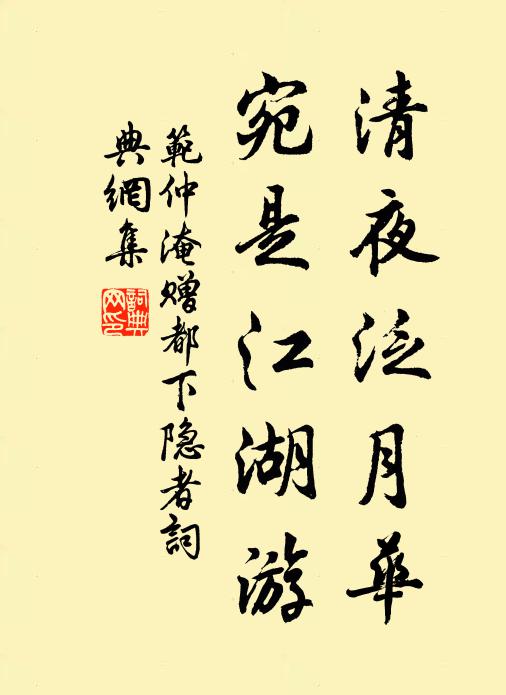 清夜泛月華
宛是江湖游
範仲淹赠都下隐者詞
典網集
詞典
网印